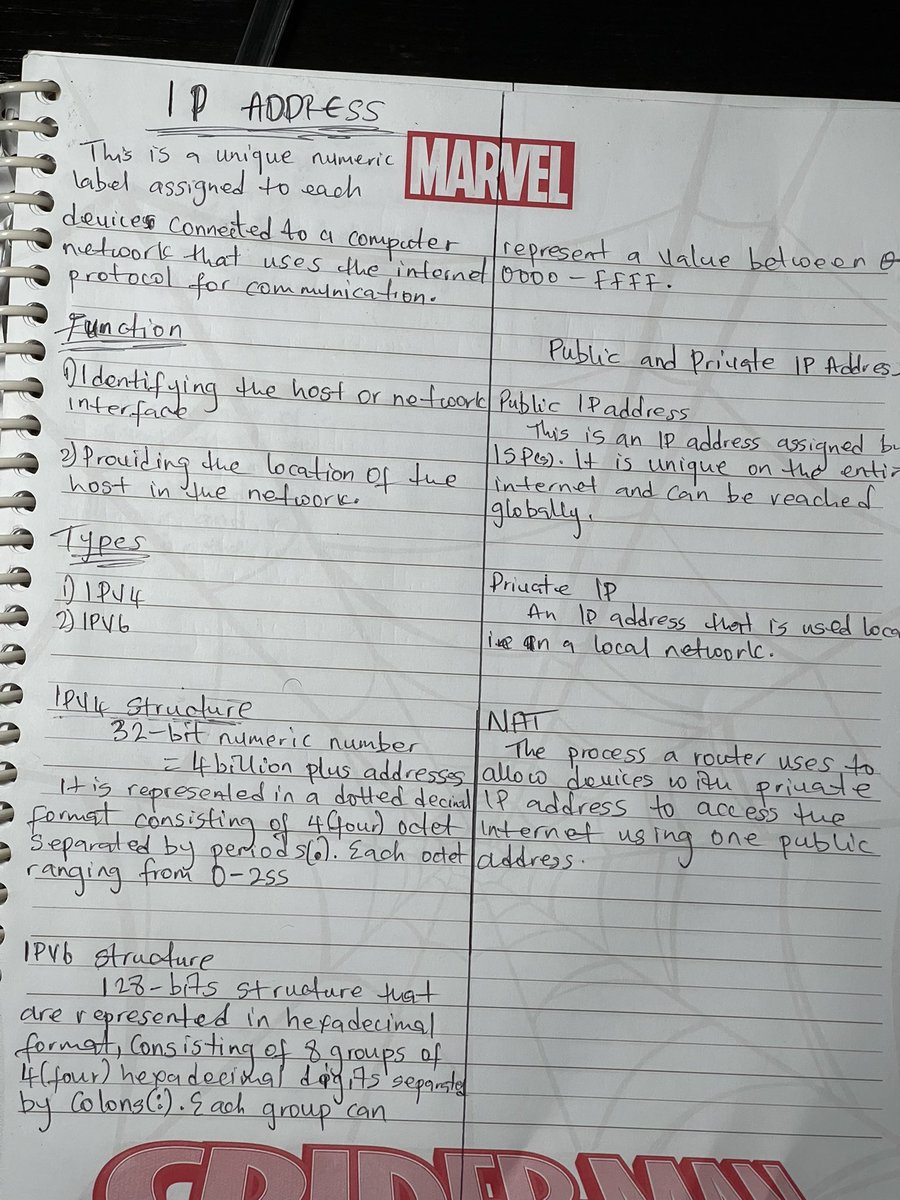 IP ADDRESS
MARVEL
This is a unique numeric
label assigned to each
devices connected to a computer
network that uses the internet
protocol for communication.
Function
1) Identifying the host or network
interface
2) Providing the location of the
host in the network.
Types
1) IPV4
2) IPV6
IPV4 Structure
32-bit numeric number
= 4 billion plus addresses
It is represented in a dotted decimal
format consisting of 4(four) octet
separated by periods(.). Each octet
ranging from 0-255
IPV6 structure
128-bits structure that
are represented in hexadecimal
format, consisting of 8 groups of
4(four) hexadecimal digits separated
by colons(:). Each group can
represent a value between
0000 - FFFF.
Public and Private IP Addres
Public IP address
This is an IP address assigned by
ISP(s). It is unique on the entir
internet and can be reached
globally.
Private IP
An IP address that is used loca
in a local network.
NAT
The process a router uses to
allow devices with private
IP address to access the
internet using one public
address.
SPIDER-MAN